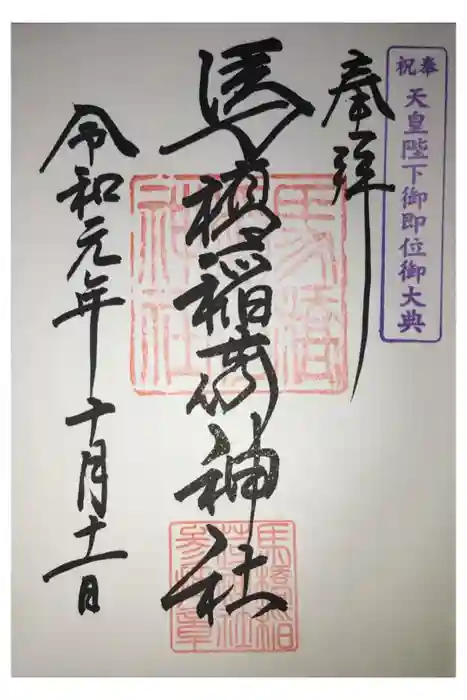 奉祝
天皇陛下御即位御大典
奉拝
馬橋稲荷神社
令和元年十月十一日
馬橋
神社
馬橋稲
荷神社